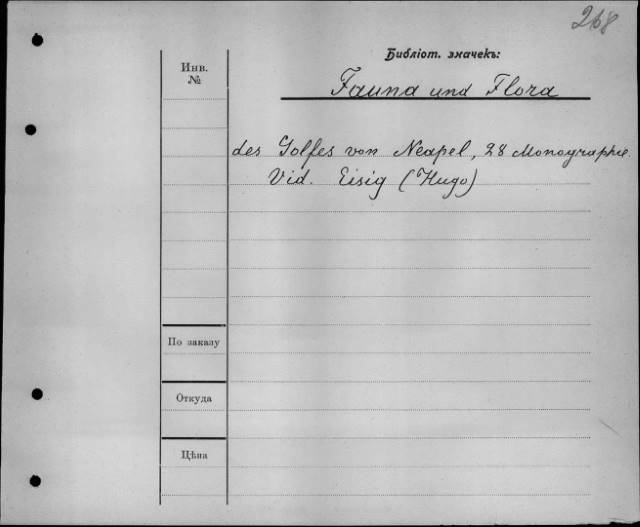 268
Библіот. значекъ:
Инв.
№
Fauna und Flora
des Golfes von Neapel, 28 Monographie.
Vid. Eisig (Hugo)
По заказу
Откуда
Цѣна